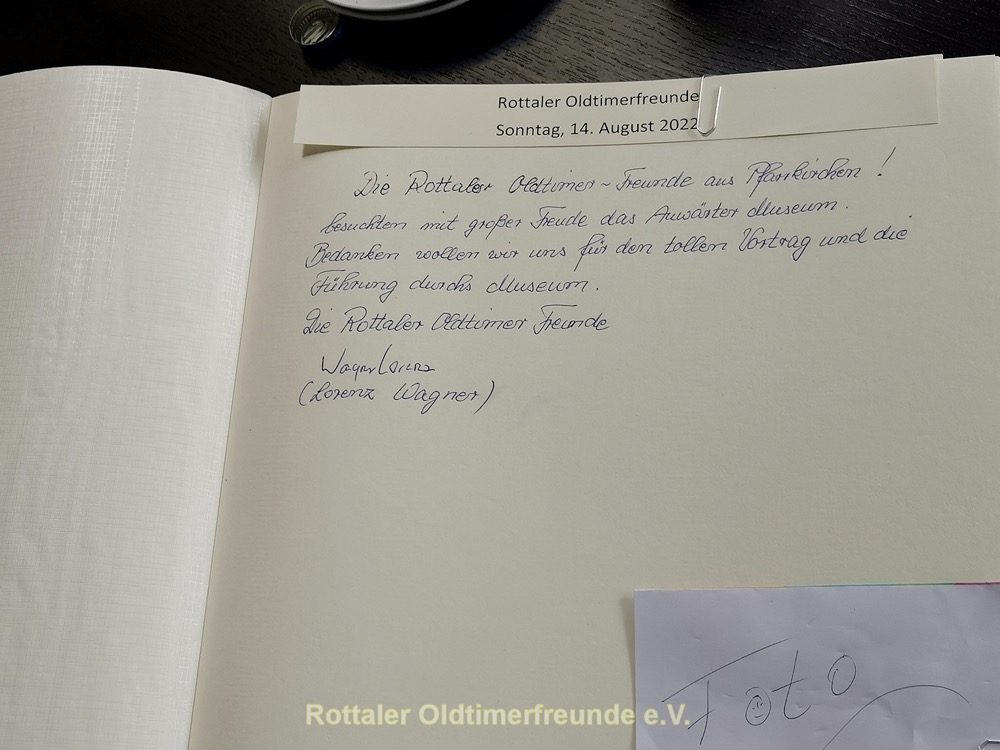 Rottaler Oldtimerfreunde
Sonntag, 14. August 2022
Die Rottaler Oldtimer~Freunde aus Pfarrkirchen!
besuchten mit großer Freude das Auwärter Museum.
Bedanken wollen wir uns für den tollen Vortrag und die
Führung durchs Museum.
Die Rottaler Oldtimer Freunde
Wagner Lorenz
(Lorenz Wagner)
Foto
Rottaler Oldtimerfreunde e.V.